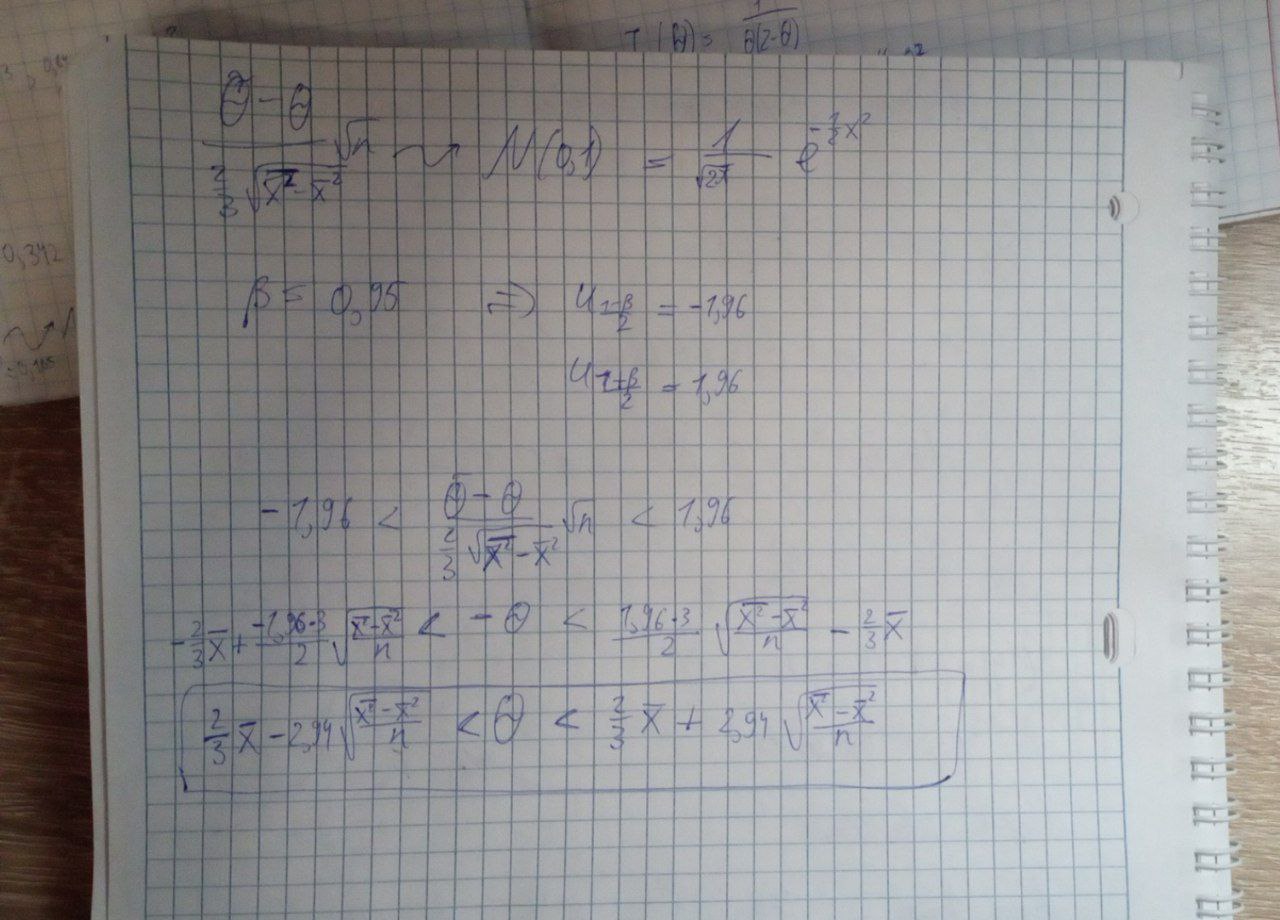 T (θ) = 1/(θ(2-θ))
0,342
(θ̃ - θ)/((2/3)√(x̄² - x̄²)) √n ⇝ N(0,1) = 1/√2π e^(-½x²)
β = 0,95 ⇒ U_(1-β)/2 = -1,96
U_(1+β)/2 = 1,96
-1,96 < (θ̃ - θ)/((2/3)√(x̄² - x̄²)) √n < 1,96
-2/3 x̄ + (-1,96·3)/2 √((x̄² - x̄²)/n) < -θ < (1,96·3)/2 √((x̄² - x̄²)/n) - 2/3 x̄
2/3 x̄ - 2,94 √((x̄² - x̄²)/n) < θ < 2/3 x̄ + 2,94 √((x̄² - x̄²)/n)